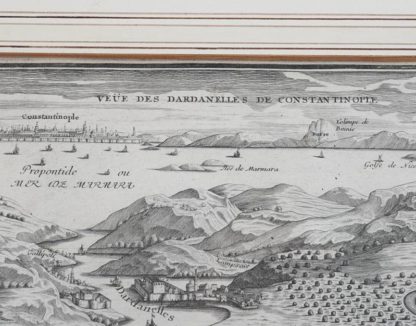 VEÜE DES DARDANELLES DE CONSTANTINOPLE
Constantinople
Colimpe de
Burse
Propontide ou
MER DE MARMARA
Isles de Marmara
Golfe de Nico
Gallipoli
Lampsaco
Dardanelles